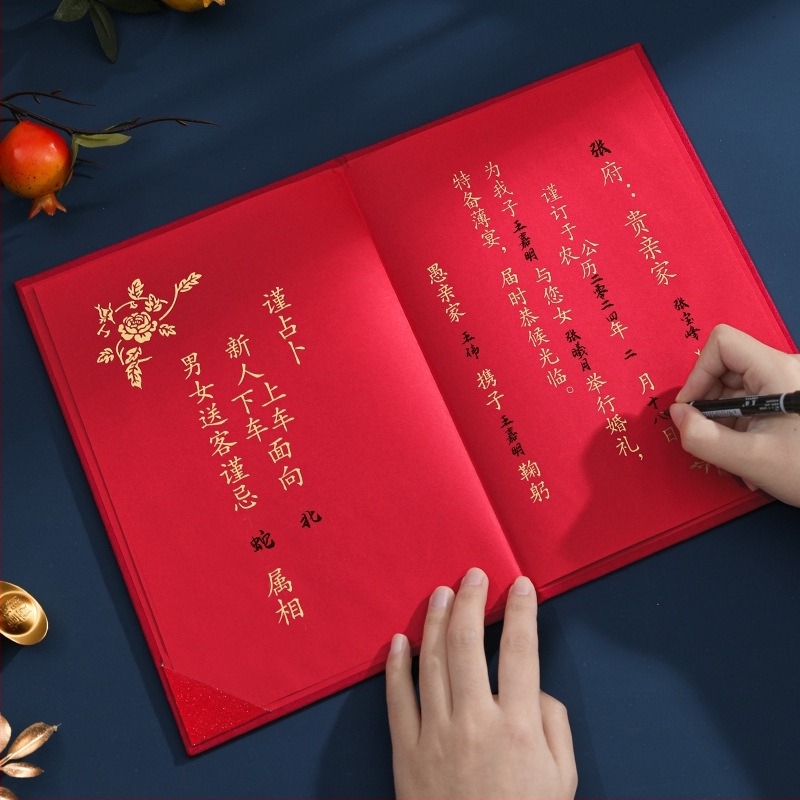 张府：贵亲家 张宝峰
谨订于公农历二零二四年 二 月十八日
为我子王嘉明与您女张曦月举行婚礼，
特备薄宴，届时恭候光临。
愚亲家 王伟 携子 王嘉明 鞠躬
谨占卜
新人上车下车面向 北
男女送客谨忌 蛇 属相